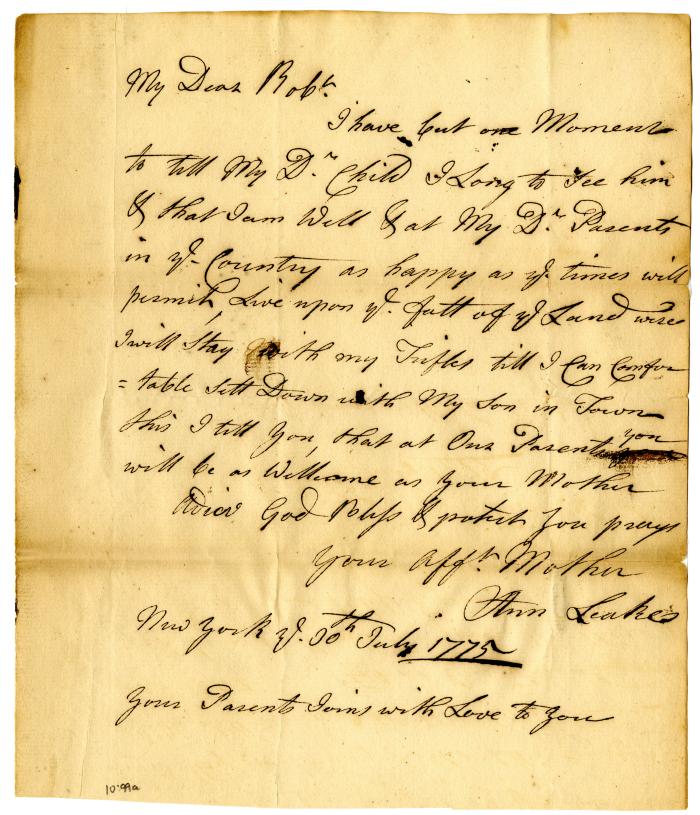 My Dear Robt.
I have but one Moment
to till My Dr. Child I Long to see him
& that I am Well & at My Dr. Parents
in ye. Country as happy as ye. times will
permit, Live upon ye. fatt of ye Land
I will Stay with my Trifles till I Can Comfor
= table Sett Down with My Son in Town
this I till You, that at Our Parents you
will be as Wellcome as your Mother
Adieu God Bless & protect you prays
your Afft. Mother
Ann Leake
New York ye. 30th July 1775
Your Parents Joins with Love to you
10'99a